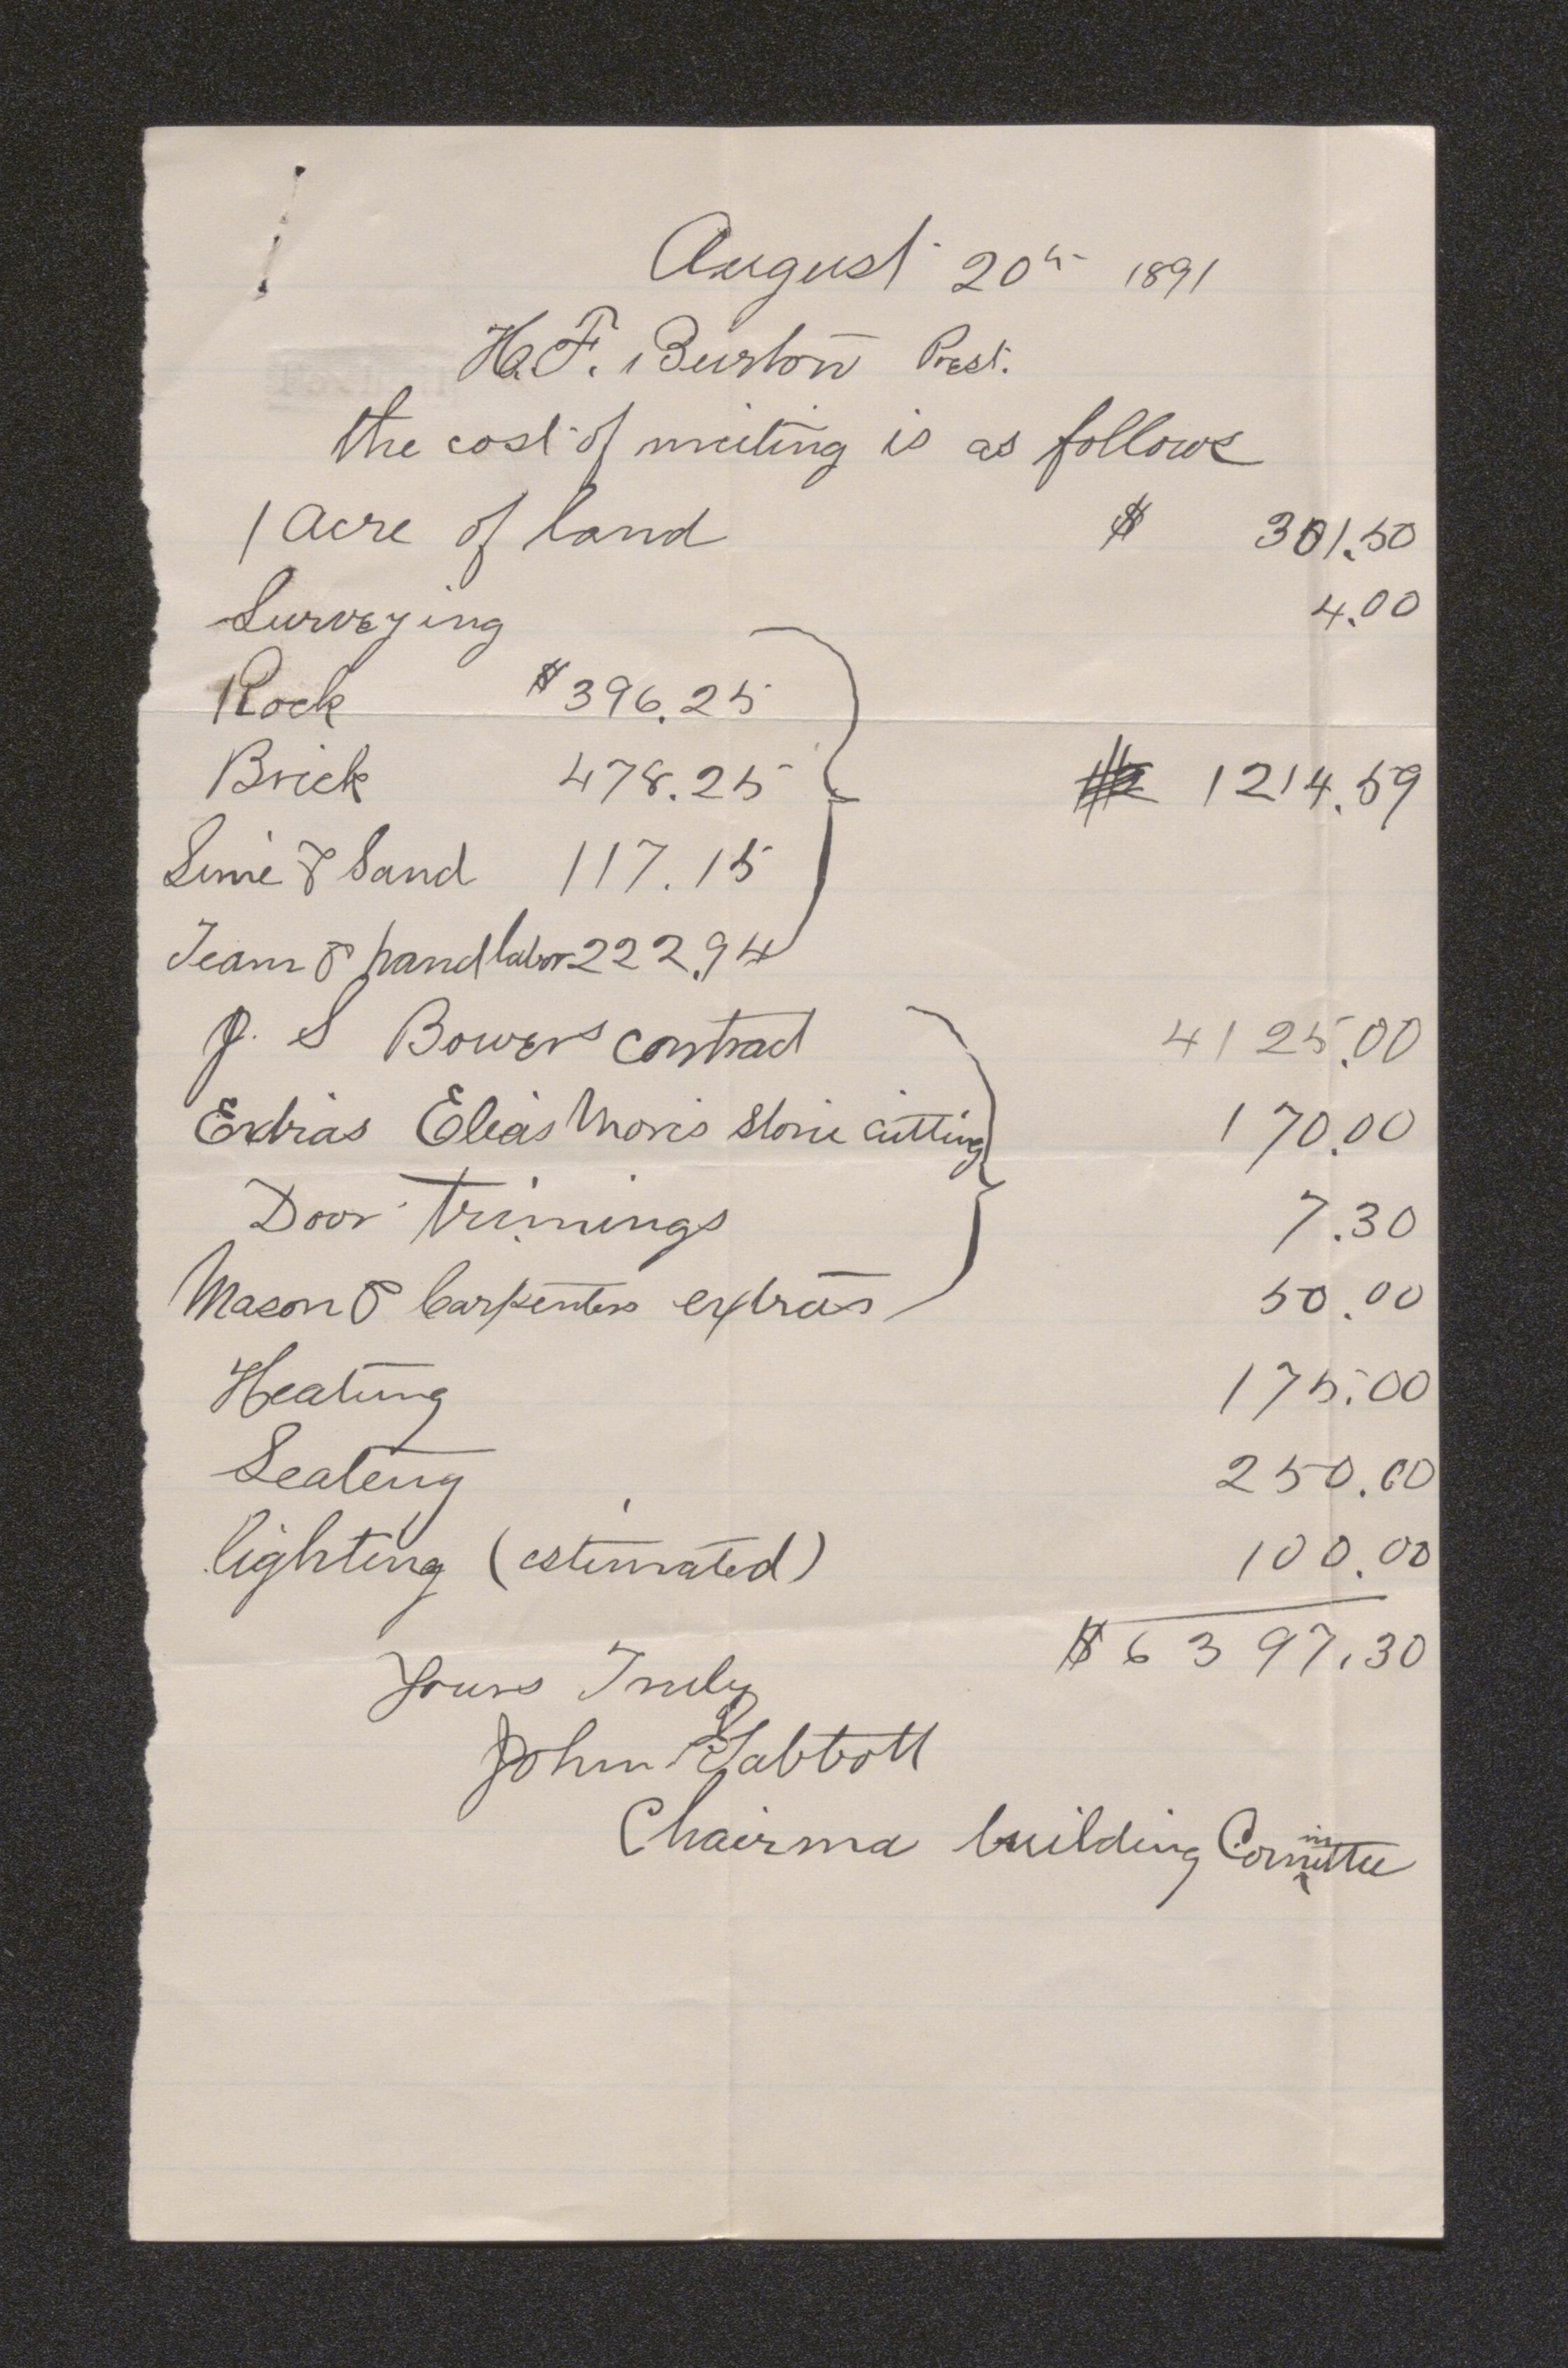 August 20th 1891
H. F. Burton Prest.
the cost of meeting is as follows
1 acre of land $ 301.50
Surveying 4.00
Rock $396.25
Brick 478.25 1214.59
Lime & Sand 117.15
Team & hand labor 222.94
J. S Bowers contract 4125.00
Extras Elias Moris stone cutting 170.00
Door trimings 7.30
Mason & Carpenters extras 50.00
Heating 175.00
Seating 250.00
lighting (estimated) 100.00
$6397.30
Yours Truly
John Gabbott
Chairma building Committee